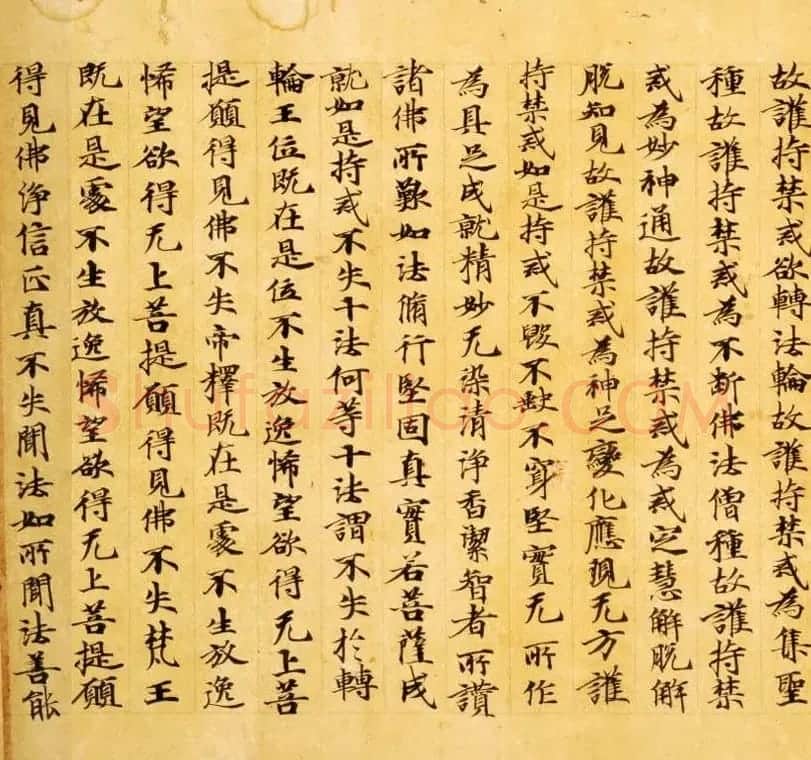 故護持禁戒欲轉法輪故護持禁戒為集聖
種故護持禁戒為不斷佛法僧種故護持禁
戒為妙神通故護持禁戒為戒定慧解脫解
脫知見故護持禁戒為神足變化應現无方護
持禁戒如是持戒不毀不缺不穿堅實无所作
為具足成就精妙无染清淨香潔智者所讚
諸佛所歎如法脩行堅固真實若菩薩成
就如是持戒不失十法何等十法謂不失於轉
輪王位既在是位不生放逸悕望欲得无上菩
提願得見佛不失帝釋既在是處不生放逸
悕望欲得无上菩提願得見佛不失梵王
既在是處不生放逸悕望欲得无上菩提願
得見佛淨信正真不失聞法如所聞法善能
Shufaziliao.COM